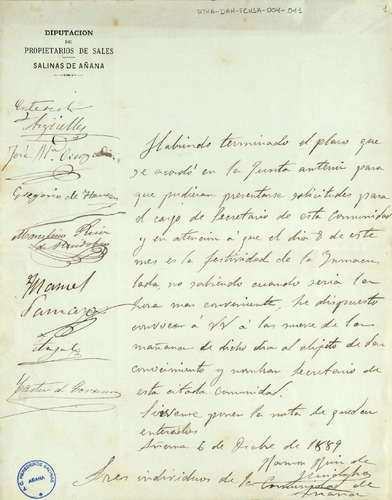 ATHA-DAH-FCHSA-004-011
1
DIPUTACION
DE
PROPIETARIOS DE SALES
SALINAS DE AÑANA
Enterado
Argüelles
José Mª
Gregorio de
Ruiz
Manuel
Pamarzo
Habiendo terminado el plazo que
se acordó en la Junta anterior para
que pudieran presentarse solicitudes para
el cargo de Secretario de esta Comunidad
y en atencion á que el dia 8 de este
mes es la festividad de la Inmacu
lada no sabiendo cuando seria la
hora mas conveniente, he dispuesto
convocar á VV á las nueve de la
mañana de dicho dia al objeto de dar
conocimiento y nombrar Secretario de
esta citada comunidad.
Sirvanse poner la nota de quedar
enterados
Añana 6 de Dicbre de 1889
Ramon Ruiz de
Sres individuos de la Comunidad de
Añana
A.C. HEREDEROS SALINAS
AÑANA